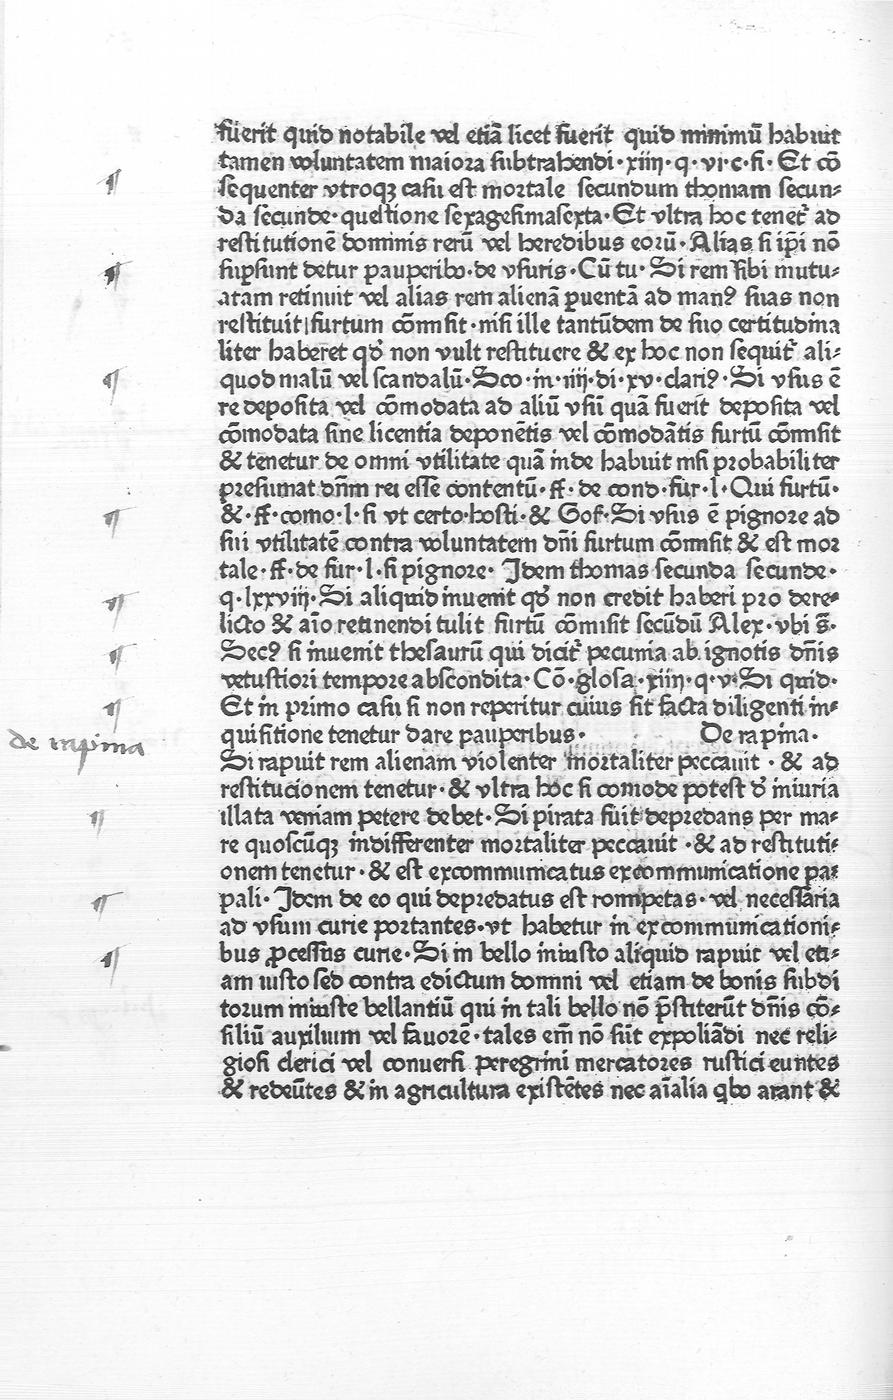 fuerit quid notabile vel etiã licet fuerit quid minimũ habuit
tamen voluntatem maiora subtrahendi·xiiij·q·vi·c·fi·Et cõ
sequenter vtroqꝫ casu est mortale secundum thomam secun⸗
da secunde·questione sexagesimasexta·Et vltra hoc tenet᷑ ad
restitutionẽ dominis rerũ vel heredibus eorũ·Alias si ip̃i nõ
suꝑsunt detur pauperibꝰ·de vsuris·Cũ tu·Si rem sibi mutu⸗
atam retinuit vel alias rem alienã ꝑuentã ad manꝰ suas non
restituit|furtum cõmisit·nisi ille tantũdem de suo certitudina
liter haberet qđ non vult restituere & ex hoc non sequit᷑ ali⸗
quod malũ vel scandalũ·Sco·in·iiij·di·xv·clariꝰ·Si vsus ẽ
re deposita vel cõmodata ad aliũ vsũ quã fuerit deposita vel
cõmodata sine licentia deponẽtis vel cõmodãtis furtũ cõmisit
& tenetur de omni vtilitate quã inde habuit nisi probabiliter
presumat dñm rei esse contentũ·ff·de cond·fur·l·Qui furtũ·
&·ff·como·l·si vt certo·hosti·& Gof·Si vsus ẽ pignore ad
sui vtilitatẽ contra voluntatem dñi furtum cõmisit & est mor
tale·ff·de fur·l·si pignore· Idem thomas secunda secunde·
q·lxxviij·Si aliquid inuenit qđ non credit haberi pro dere⸗
licto & aĩo retinendi tulit furtũ cõmisit secũdũ Alex·vbi s̃·
Secꝰ si inuenit thesaurũ qui dicit᷑ pecunia ab ignotis dñis
vetustiori tempore abscondita·Cõ·glosa·xiiij·q·v·Si quid·
Et in primo casu si non reperitur cuius sit facta diligenti in⸗
quisitione tenetur dare pauperibus· De rapina·
de rapina
Si rapuit rem alienam violenter mortaliter peccauit · & ad
restitucionem tenetur·& vltra hoc si comode potest đ iniuria
illata veniam petere debet·Si pirata fuit depredans per ma⸗
re quoscũqꝫ indifferenter mortaliter peccauit ·& ad restituti⸗
onem tenetur·& est excommunicatus excommunicatione pa⸗
pali· Idem de eo qui depredatus est romipetas·vel necessaria
ad vsum curie portantes·vt habetur in excommunicationi⸗
bus ꝓcessus curie·Si in bello iniusto aliquid rapuit vel eti⸗
am iusto sed contra edictum domini vel etiam de bonis subdi
torum iniuste bellantiũ qui in tali bello nõ p̃stiterũt dñis cõ⸗
siliũ auxilium vel fauorẽ·tales em̃ nõ sũt expoliãdi nec reli⸗
giosi clerici vel conuersi peregrini mercatores rustici euntes
& redeũtes & in agricultura existẽtes nec aĩalia qbꝰ arant &